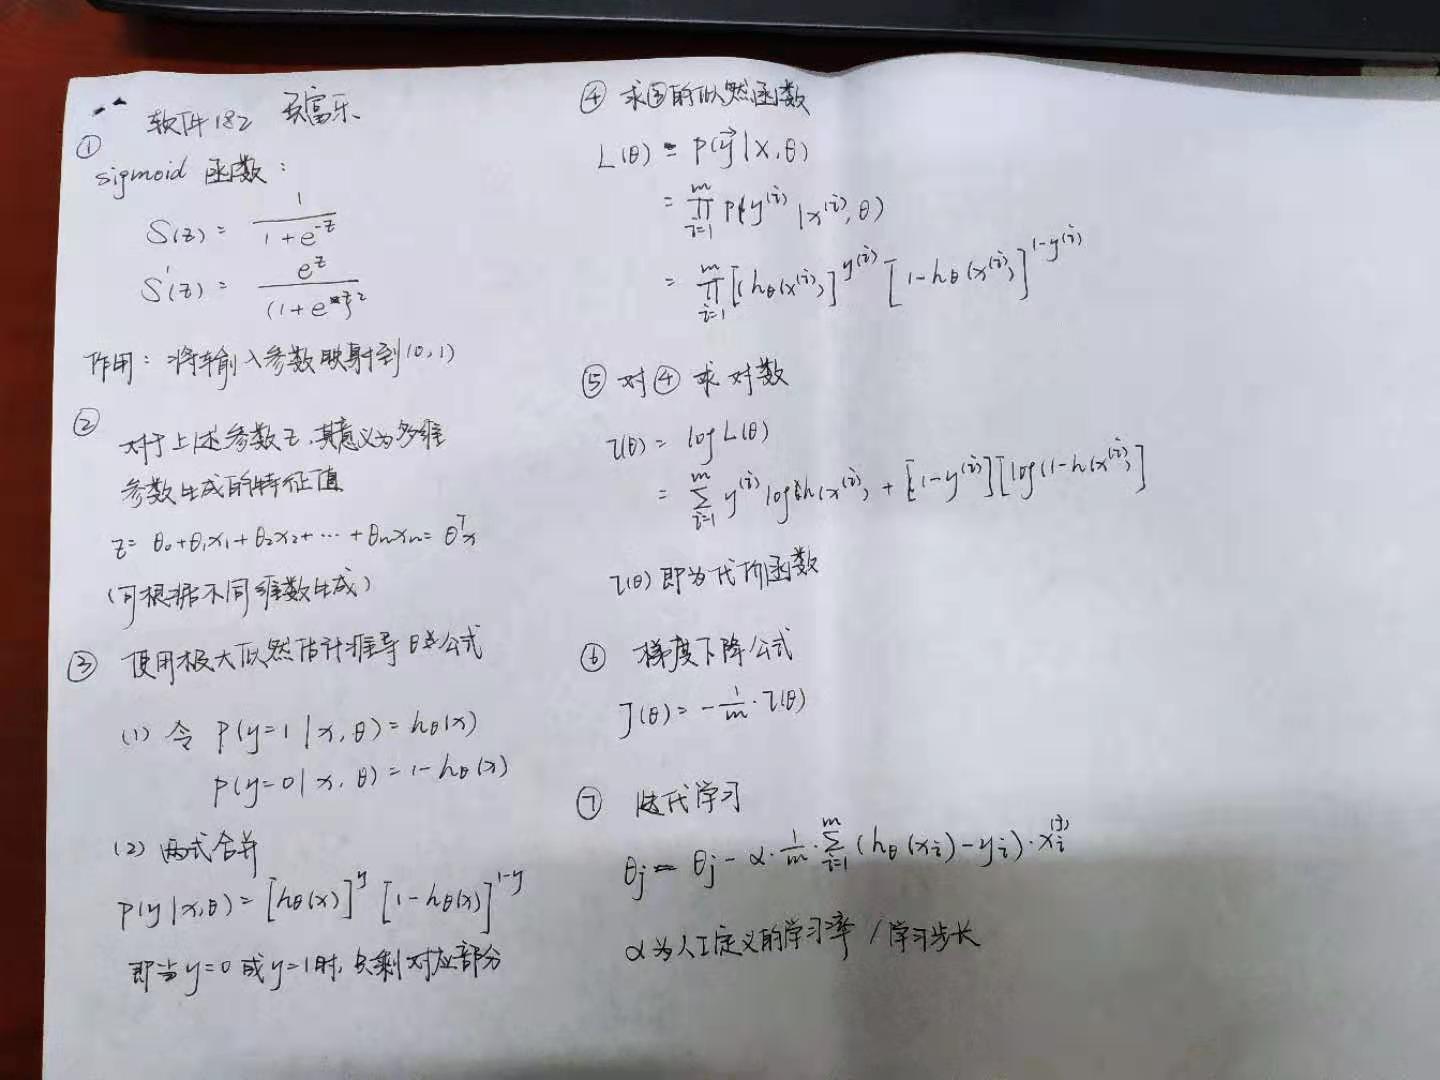 软件182 富乐
①
sigmoid 函数：
S(z) = 1 / (1+e^{-z})
S'(z) = e^z / (1+e^z)^2
作用：将输入参数映射到(0,1)
②
对于上述参数z，其意义为多维
参数生成的特征值
z= θ₀+θ₁x₁+θ₂x₂+…+θₙxₙ= θᵀx
（可根据不同维数生成）
③ 使用极大似然估计推导θ公式
(1) 令 P(y=1|x,θ)=h_θ(x)
P(y=0|x,θ)=1-h_θ(x)
(2) 两式合并
P(y|x,θ)=[h_θ(x)]^y [1-h_θ(x)]^{1-y}
即当y=0或y=1时，只剩对应部分
④ 求③的似然函数
L(θ) = P(y⃗|x,θ)
= ∏_{i=1}^m P(y^{(i)}|x^{(i)},θ)
= ∏_{i=1}^m [(h_θ(x^{(i)})]^{y^{(i)}} [1-h_θ(x^{(i)})]^{1-y^{(i)}}
⑤ 对④求对数
l(θ) = log L(θ)
= ∑_{i=1}^m y^{(i)} log h(x^{(i)}) + [1-y^{(i)}][log(1-h(x^{(i)})]
l(θ)即为代价函数
⑥ 梯度下降公式
J(θ)= -1/m · l(θ)
⑦ 迭代学习
θj = θj - α · 1/m · ∑_{i=1}^m (h_θ(xᵢ)-yᵢ)·xᵢ^{(j)}
α为人工定义的学习率/学习步长